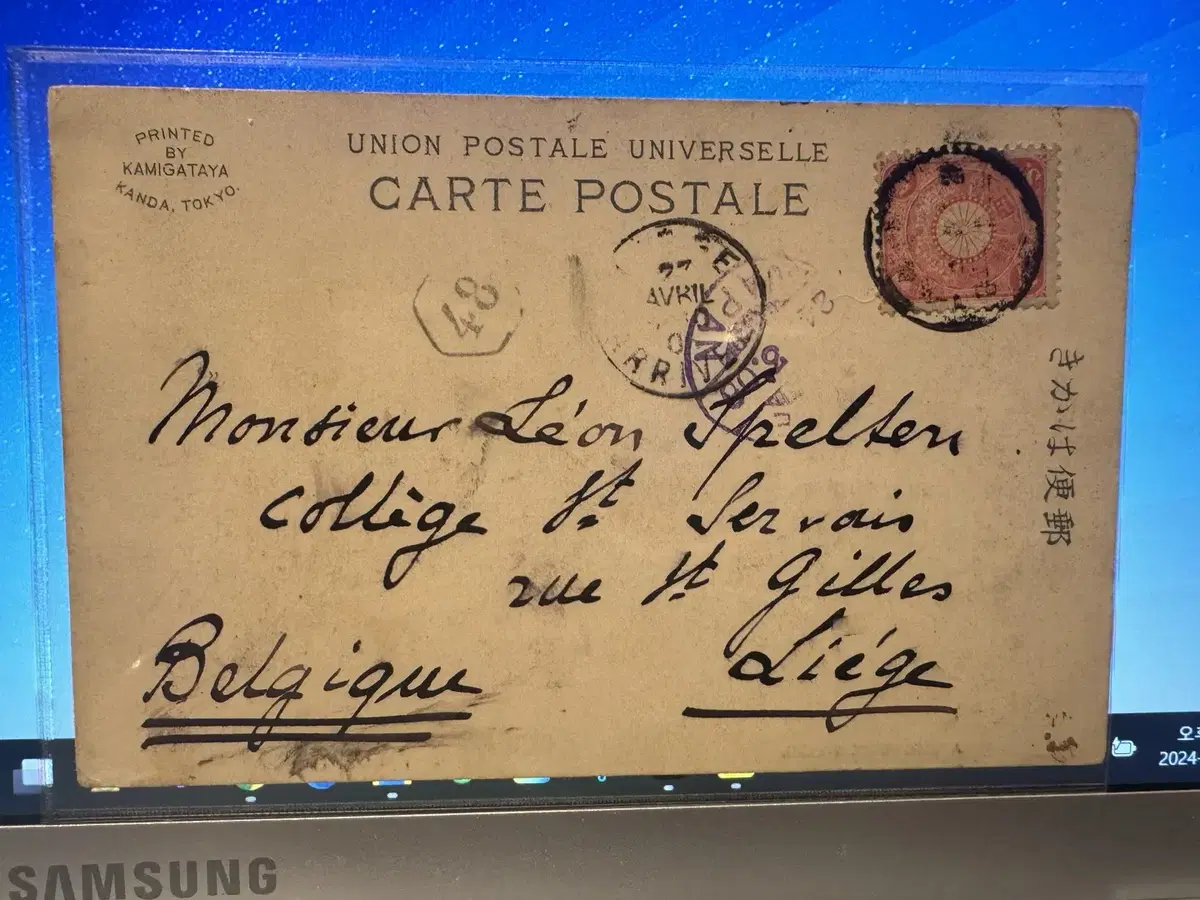 PRINTED
BY
KAMIGATAYA
KANDA, TOKYO.
UNION POSTALE UNIVERSELLE
CARTE POSTALE
48
27
AVRIL
ARRI
PAR
きかは便郵
Monsieur Léon Spelten
Collège St Servais
rue St Gilles
Liége
Belgique
오후
2024-
SAMSUNG